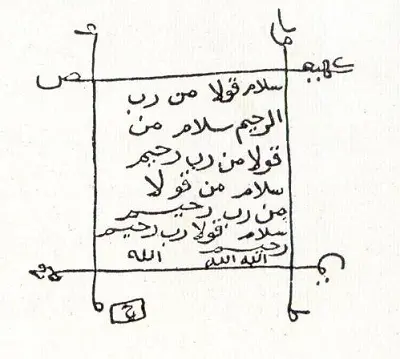 سلام قولا من رب
الرحيم سلام من
قولا من رب رحيم
سلام من قولا
من رب رحيم
سلام قولا رب رحيم
رحيم
الله الله الله
ص